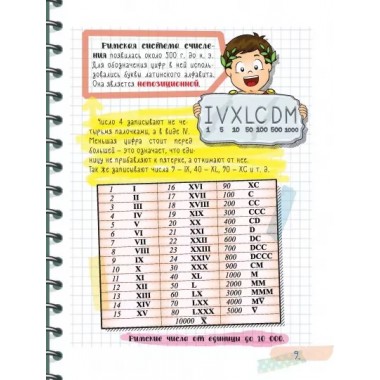 Римская система счисле-
ния появилась около 500 г. до н. э.
Для обозначения цифр в ней исполь-
зовались буквы латинского алфавита.
Она является непозиционной.
I V X L C D M
1 5 10 50 100 500 1000
Число 4 записывают не че-
тырьмя палочками, а в виде IV.
Меньшая цифра стоит перед
большей – это означает, что еди-
ницу не прибавляют к пятерке, а отнимают от нее.
Так же записывают числа 9 – IX, 40 – XL, 90 – XC и т. д.
1 I 16 XVI 90 XC
2 II 17 XVII 100 C
3 III 18 XVIII 200 CC
4 IV 19 XIX 300 CCC
5 V 20 XX 400 CD
6 VI 21 XXI 500 D
7 VII 22 XXII 600 DC
8 VIII 23 XXIII 700 DCC
9 IX 24 XXIV 800 DCCC
10 X 30 XXX 900 CM
11 XI 40 XL 1000 M
12 XII 50 L 2000 MM
13 XIII 60 LX 3000 MMM
14 XIV 70 LXX 4000 MV̅
15 XV 80 LXXX 5000 V̅
10000 X̅
Римские числа от единицы до 10 000.